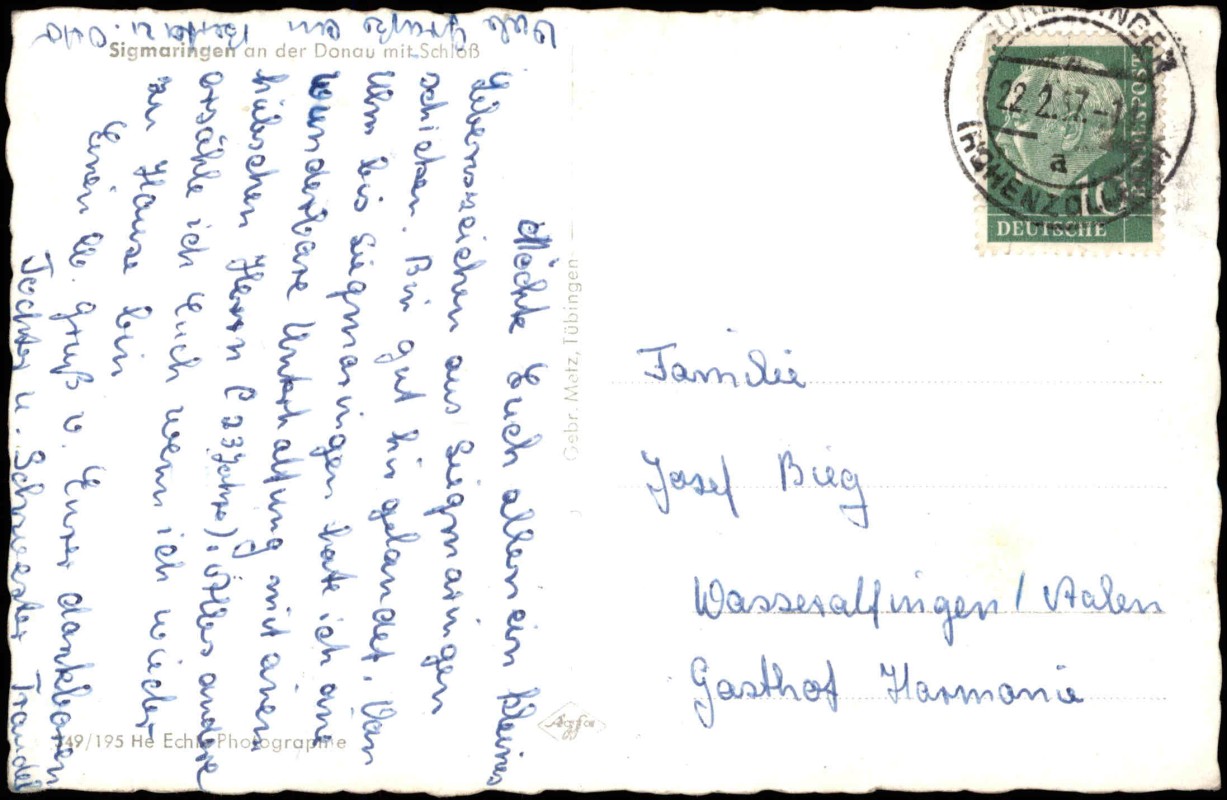 Sigmaringen an der Donau mit Schloß
Viele Grüße an Berta u. Otto
Möchte Euch allen ein kleines
Lebenszeichen aus Siegmaringen
schicken. Bin gut hir gelandet. Von
Ulm bis Siegmaringen hate ich eine
wunderbare Unterhaltung mit einen
hübschen Herrn (23 Jahre). Alles andere
erzähle ich Euch wenn ich wieder
zu Hause bin
Einen lb. Gruß v. Eurer dankbaren
Tochter u. Schwester Traudel
149/195 He Echte Photographie
Gebr. Metz, Tübingen
Agfa
22.2.57.-1
a
(HOHENZOLLERN)
BUNDESPOST
10
DEUTSCHE
Familie
Josef Bieg
Wasseralfingen / Aalen
Gasthof Harmonie